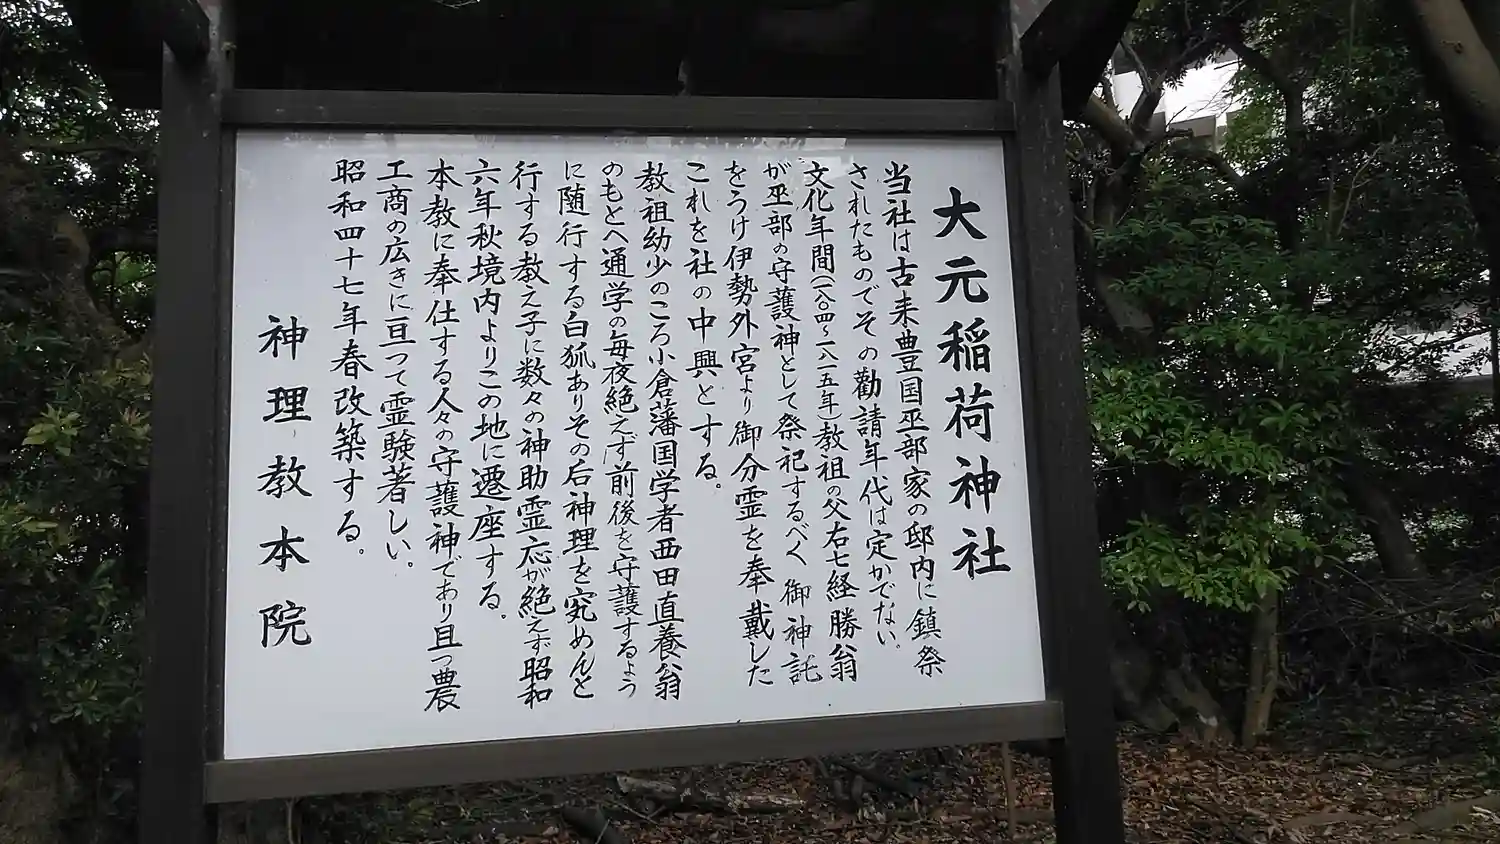 大元稲荷神社
当社は古来豊国巫部家の邸内に鎮祭
されたものでその勸請年代は定かでない。
文化年間(一八〇四〜一八一五年)教祖の父右七経勝翁
が巫部の守護神として祭祀するべく御神託
をうけ伊勢外宮より御分霊を奉戴した
これを社の中興とする。
教祖幼少のころ小倉藩国学者西田直養翁
のもとへ通学の毎夜絶えず前後を守護するよう
に随行する白狐ありその后神理を究めんと
行する教え子に数々の神助霊応が絶えず昭和
六年秋境内よりこの地に遷座する。
本教に奉仕する人々の守護神であり且つ農
工商の広きに亘って霊験著しい。
昭和四十七年春改築する。
神理教本院